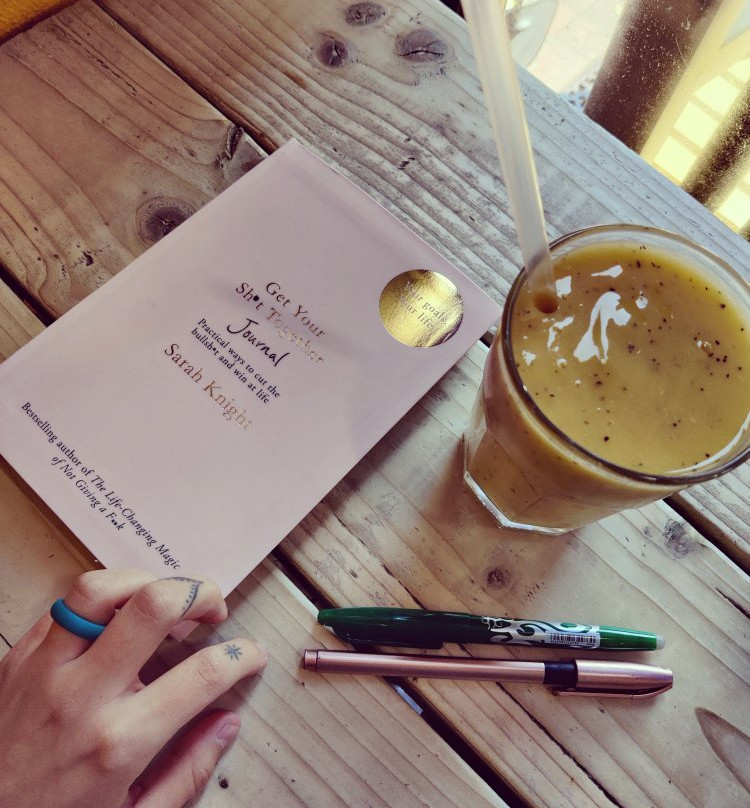 Get Your
Sh•t Together
Journal
Practical ways to cut the
bullsh•t and win at life
Sarah Knight
your goals
your life
Bestselling author of The Life-Changing Magic
of Not Giving a F••k